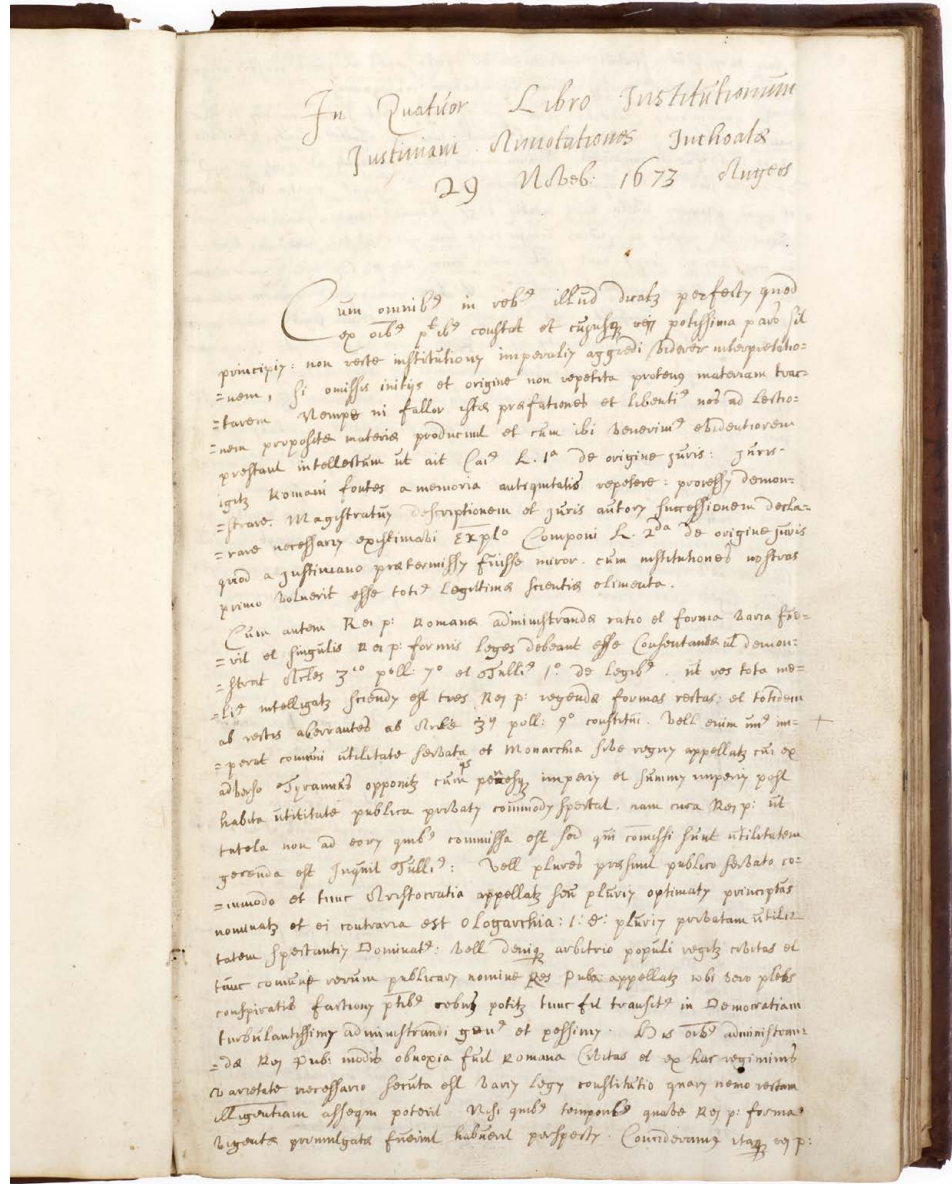 In Quatuor Libro Institutionum
Justiniani Annotationes Inchoatæ
29 Noveb: 1673 Anyers
Cum omnib⁹ in reb⁹ illud dicatꝫ perfectꝫ quod
ex oib⁹ ptib⁹ constat et cujusqꝫ rei potissima pars sit
principiꝫ: non recte institutionꝫ imperaliꝫ aggredi viderer interpretatio=
=nem, si omissis initijs et origine non repetita protenꝰ materiam trac=
=tarem Nempe ni fallor istæ præfationes et libentiꝰ nos ad lectio=
=nem propositæ materiæ producunt et cum ibi venerimꝰ evidentiorem
prestant intellectum ut ait Caiꝰ L. 1ª de origine juris: juris
igitꝫ Romani fontes a memoria antiquitatis repetere: processꝫ demon=
=strare. Magistratuꝫ descriptionem et juris autorꝫ successionem decla=
=rare necessariꝫ existimavi Explo Componi L. 2da de origine juris
quod a Justiniano prætermissꝫ fuisse miror. cum institutiones nostras
primo voluerit esse totiꝰ Legitimæ scientiæ elimenta.
Cum autem Rei p: Romanæ administrandæ ratio et forma varia fue=
=rit et singulis Rei p: formis leges debeant esse Consentaneæ ut demon=
=strat Arles 3cio poll: 7º et Tulliꝰ 1º. de Legibꝰ. ut res tota me=
=liꝰ intelligatꝫ sciendꝫ est tres Rei p: regendæ formas rectas: et totidem
ab rectis aberrantes ab Arle 3ꝫ poll: 9º constitui. Vell enim unꝰ im= +
=perat comuni utilitate servata et Monarchia sive regnꝫ appellatꝫ cui ex
adverso Tyramnꝰ opponitꝫ cum imperiꝫ et summꝫ imperiꝫ post
habita utititate publica privatꝫ commodꝫ spectat. nam cura Rei p: ut
tutela non ad eorꝫ quibꝰ commissa est sed qui comissi sunt utilitatem
gerenda est Inquit Tulliꝰ: Vell plures præsunt publico servato co=
=mmodo et tunc Aristocratia appellatꝫ seu pluriꝫ optimatꝫ principtas
nominatꝫ et ei contraria est Ologarchia: i: e: pluriꝫ privatam utili=
tatem spectantiꝫ Dominatꝰ: Vell deniqꝫ arbitrio populi regitꝫ civitas et
tunc comune rerum publicarꝫ nomine Res Puba appellatꝫ ubi vero plebs
conspiratis factionꝫ ptibꝰ rebus potitꝫ tunc fit transitꝰ in Democratiam
turbulantissimꝫ administrandi genꝰ et pessimꝫ. His oibꝰ administran=
=dæ Rei Pubi modis obnoxia fuit Romana Civitas et ex hac regiminis
varietate necessario secuta est variꝫ Legꝫ constitutio quarꝫ nemo rectam
illigentiam assequi poterit Nisi quibꝰ temporibꝰ quave Rei p: forma
vigente promulgatæ fuerint habuerit perspectꝫ. Concideramus itaqꝫ rei p: